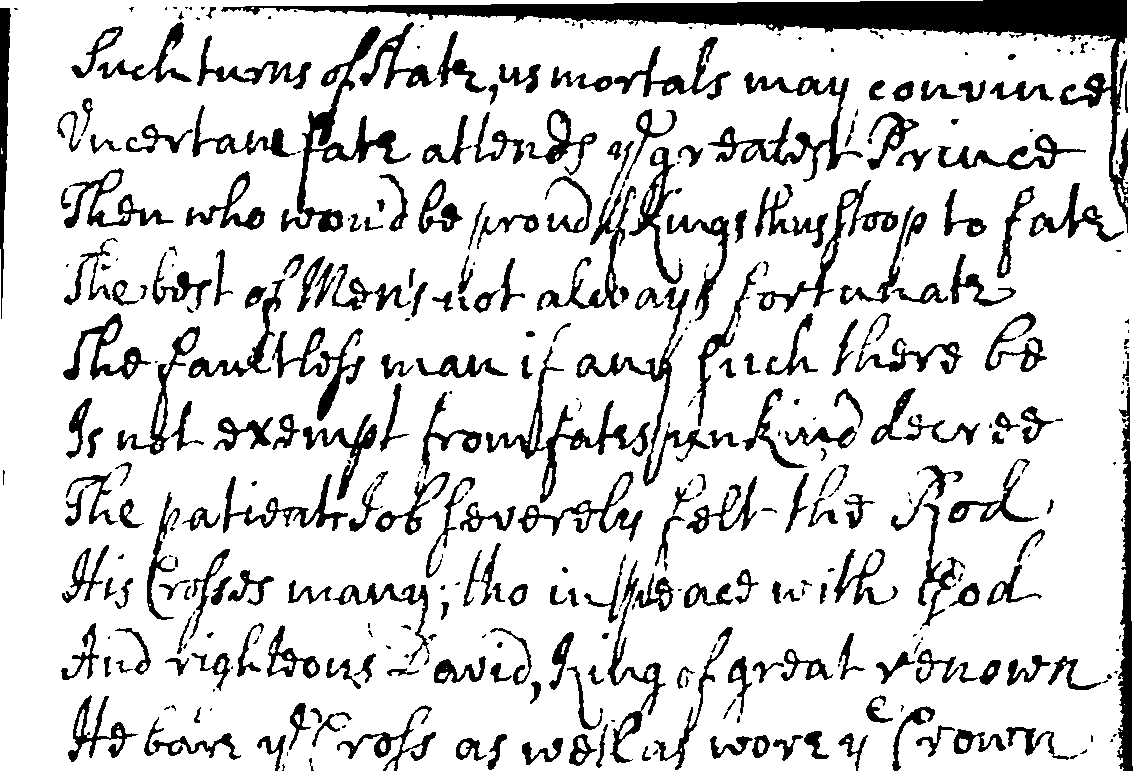 Such turns of State, us mortals may convince
Uncertane fate attends ye greatest Prince
Then who wou'd be proud if Kings thus stoop to fate
The best of Men's not always fortunate
The faultless man if any such there be
Is not exempt from fates unkind decree
The patient Job severely felt the Rod
His Crosses many; tho in peace with God
And righteous David, King of great renown
He bare ye Cross as well as wore ye Crown